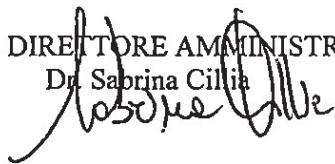 DIRETTORE AMMINISTR
Dr. Sabrina Cillia